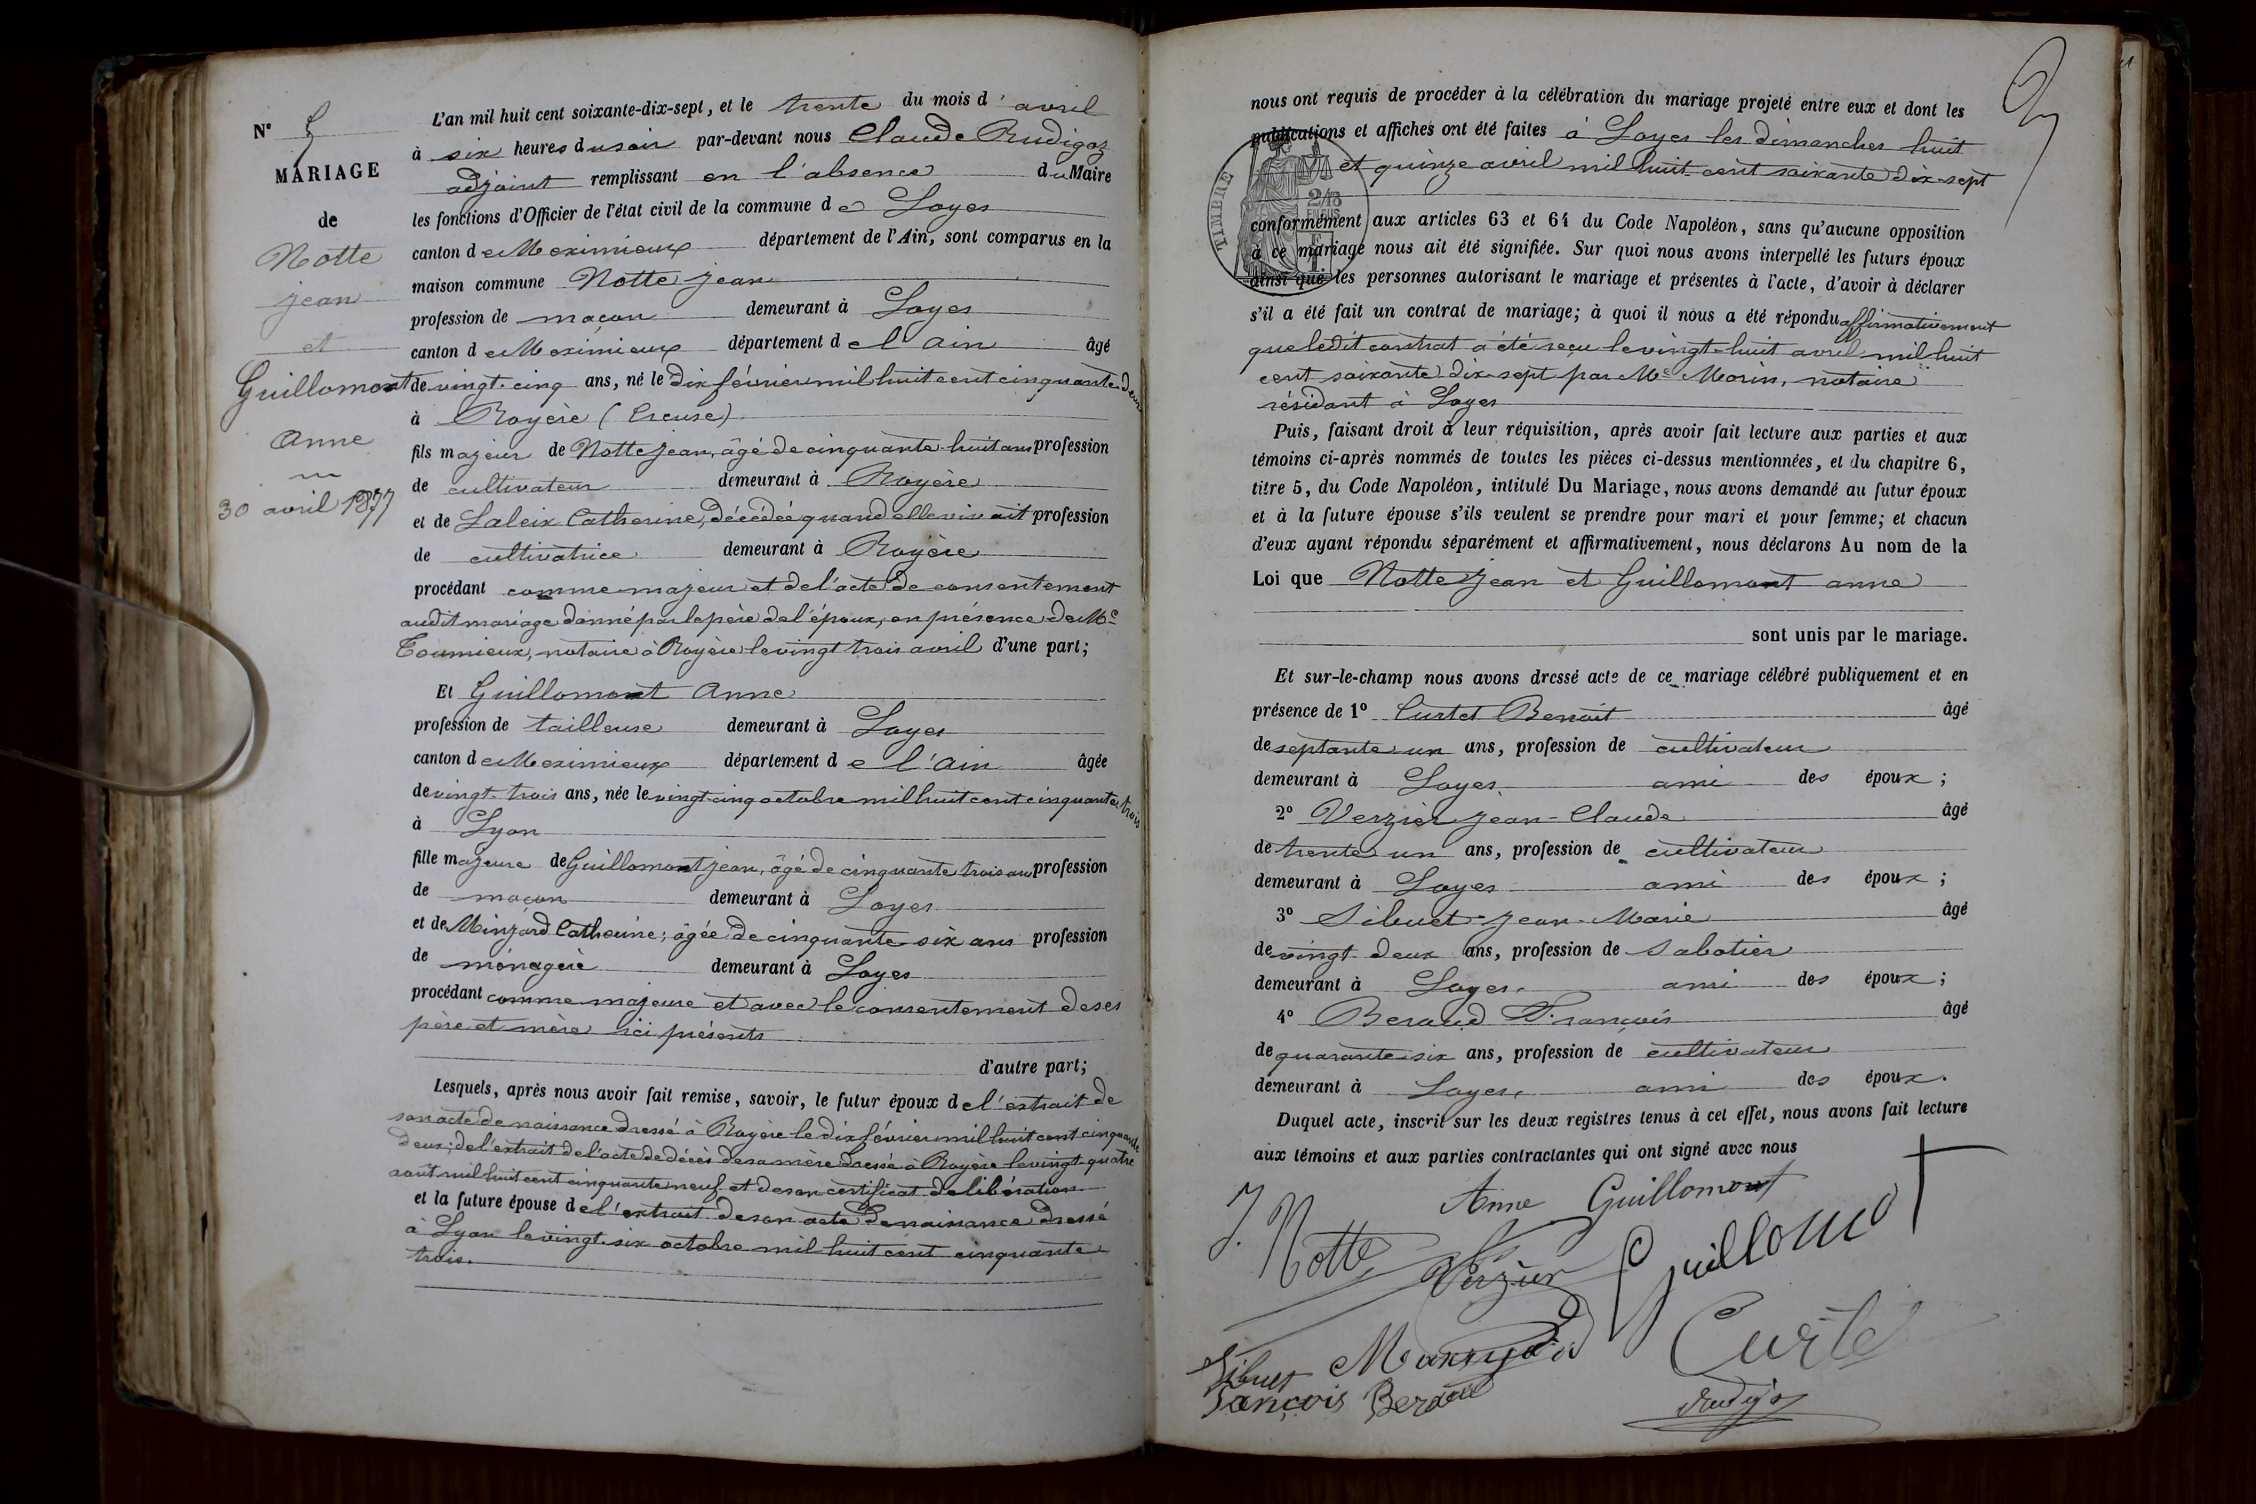 N° 5
MARIAGE
de
Notte
jean
et
Guillomont
Anne
30 avril 1877
L'an mil huit cent soixante-dix-sept, et le trente du mois d'avril
à six heures du soir par-devant nous Claude Rudigoz
adjoint remplissant en l'absence du Maire
les fonctions d'Officier de l'état civil de la commune de Loyes
canton de Meximieux département de l'Ain, sont comparus en la
maison commune Notte jean
profession de maçon demeurant à Loyes
canton de Meximieux département de l'Ain âgé
de vingt-cinq ans, né le dix février mil huit cent cinquante-deux
à Royère (Creuse)
fils majeur de Notte jean, âgé de cinquante-huit ans profession
de cultivateur demeurant à Royère
et de Laleix Catherine, décédée quand elle vivait profession
de cultivatrice demeurant à Royère
procédant comme majeur et de l'acte de consentement
audit mariage donné par le père de l'époux, en présence de Me
Toumieux, notaire à Royère le vingt trois avril d'une part;
Et Guillomont Anne
profession de tailleuse demeurant à Loyes
canton de Meximieux département de l'Ain âgée
de vingt-trois ans, née le vingt-cinq octobre mil huit cent cinquante trois
à Lyon
fille majeure de Guillomont jean, âgé de cinquante trois ans profession
de maçon demeurant à Loyes
et de Minjard Catherine, âgée de cinquante-six ans profession
de ménagère demeurant à Loyes
procédant comme majeure et avec le consentement de ses
père et mère ici présents
d'autre part;
Lesquels, après nous avoir fait remise, savoir, le futur époux de l'extrait de
son acte de naissance dressé à Royère le dix février mil huit cent cinquante
deux; de l'extrait de l'acte de décès de sa mère dressé à Royère le vingt-quatre
août mil huit cent cinquante neuf et de son certificat de libération
et la future épouse de l'extrait de son acte de naissance dressé
à Lyon le vingt-six octobre mil huit cent cinquante
trois.
nous ont requis de procéder à la célébration du mariage projeté entre eux et dont les
publications et affiches ont été faites à Loyes les dimanches huit
et quinze avril mil huit cent soixante dix-sept
TIMBRE
conformément aux articles 63 et 64 du Code Napoléon, sans qu'aucune opposition
à ce mariage nous ait été signifiée. Sur quoi nous avons interpellé les futurs époux
ainsi que les personnes autorisant le mariage et présentes à l'acte, d'avoir à déclarer
s'il a été fait un contrat de mariage; à quoi il nous a été répondu affirmativement
que ledit contrat a été reçu le vingt-huit avril mil huit
cent soixante dix-sept par Me Morin, notaire
résidant à Loyes
Puis, faisant droit à leur réquisition, après avoir fait lecture aux parties et aux
témoins ci-après nommés de toutes les pièces ci-dessus mentionnées, et du chapitre 6,
titre 5, du Code Napoléon, intitulé Du Mariage, nous avons demandé au futur époux
et à la future épouse s'ils veulent se prendre pour mari et pour femme; et chacun
d'eux ayant répondu séparément et affirmativement, nous déclarons Au nom de la
Loi que Notte jean et Guillomont anne
sont unis par le mariage.
Et sur-le-champ nous avons dressé acte de ce mariage célébré publiquement et en
présence de 1° Curtet Benoit âgé
de septante un ans, profession de cultivateur
demeurant à Loyes ami des époux;
2° Verzier jean-Claude âgé
de trente un ans, profession de cultivateur
demeurant à Loyes ami des époux;
3° Sibuet jean-Marie âgé
de vingt-deux ans, profession de sabotier
demeurant à Loyes ami des époux;
4° Beraud François âgé
de quarante-six ans, profession de cultivateur
demeurant à Loyes ami des époux.
Duquel acte, inscrit sur les deux registres tenus à cet effet, nous avons fait lecture
aux témoins et aux parties contractantes qui ont signé avec nous
Anne Guillomont
J. Notte
Verzier Guillomot
Curtet
Sibuet
François Beraud
Rudigoz